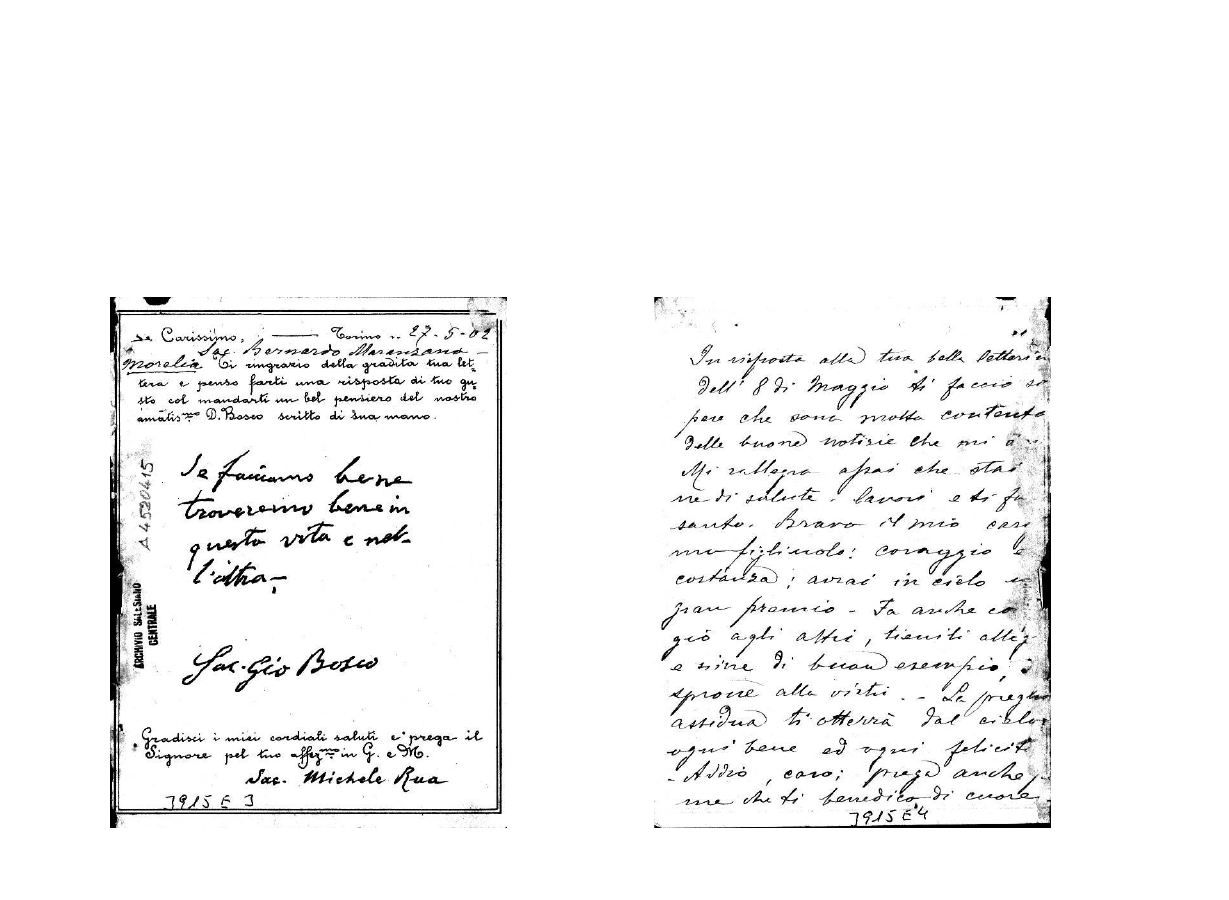 Carissimo, —— Torino .. 27-5-02
Sac. Bernardo Maranzana -
Morelia Ti ringrazio della gradita tua let-
tera e penso farti una risposta di tuo gu-
sto col mandarti un bel pensiero del nostro
amatis.mo D. Bosco scritto di sua mano.
Se facciamo bene
troveremo bene in
questa vita e nel-
l'altra -
Sac. Gio Bosco
Gradisci i miei cordiali saluti e prega il
Signore pel tuo affez.mo in G. e M.
Sac. Michele Rua
3915 E 3
A 4520415
ARCHIVIO SALESIANO
CENTRALE
In risposta alla tua bella letterina
dell' 8 di Maggio ti faccio sa
pere che sono molto contento
delle buone notizie che mi
Mi rallegro assai che stai
ne di salute. lavori e ti fa
santo. Bravo il mio caris
mo figliuolo: coraggio e
costanza; avrai in cielo un
gran premio - Fa anche co
gio agli altri, tieniti alleg
e sii di buon esempio,
sprone alla virtù. - La preghiera
assidua ti otterrà dal cielo
ogni bene ed ogni felicit
- Addio, caro; prega anche p
me che ti benedico di cuore
3915 E 4